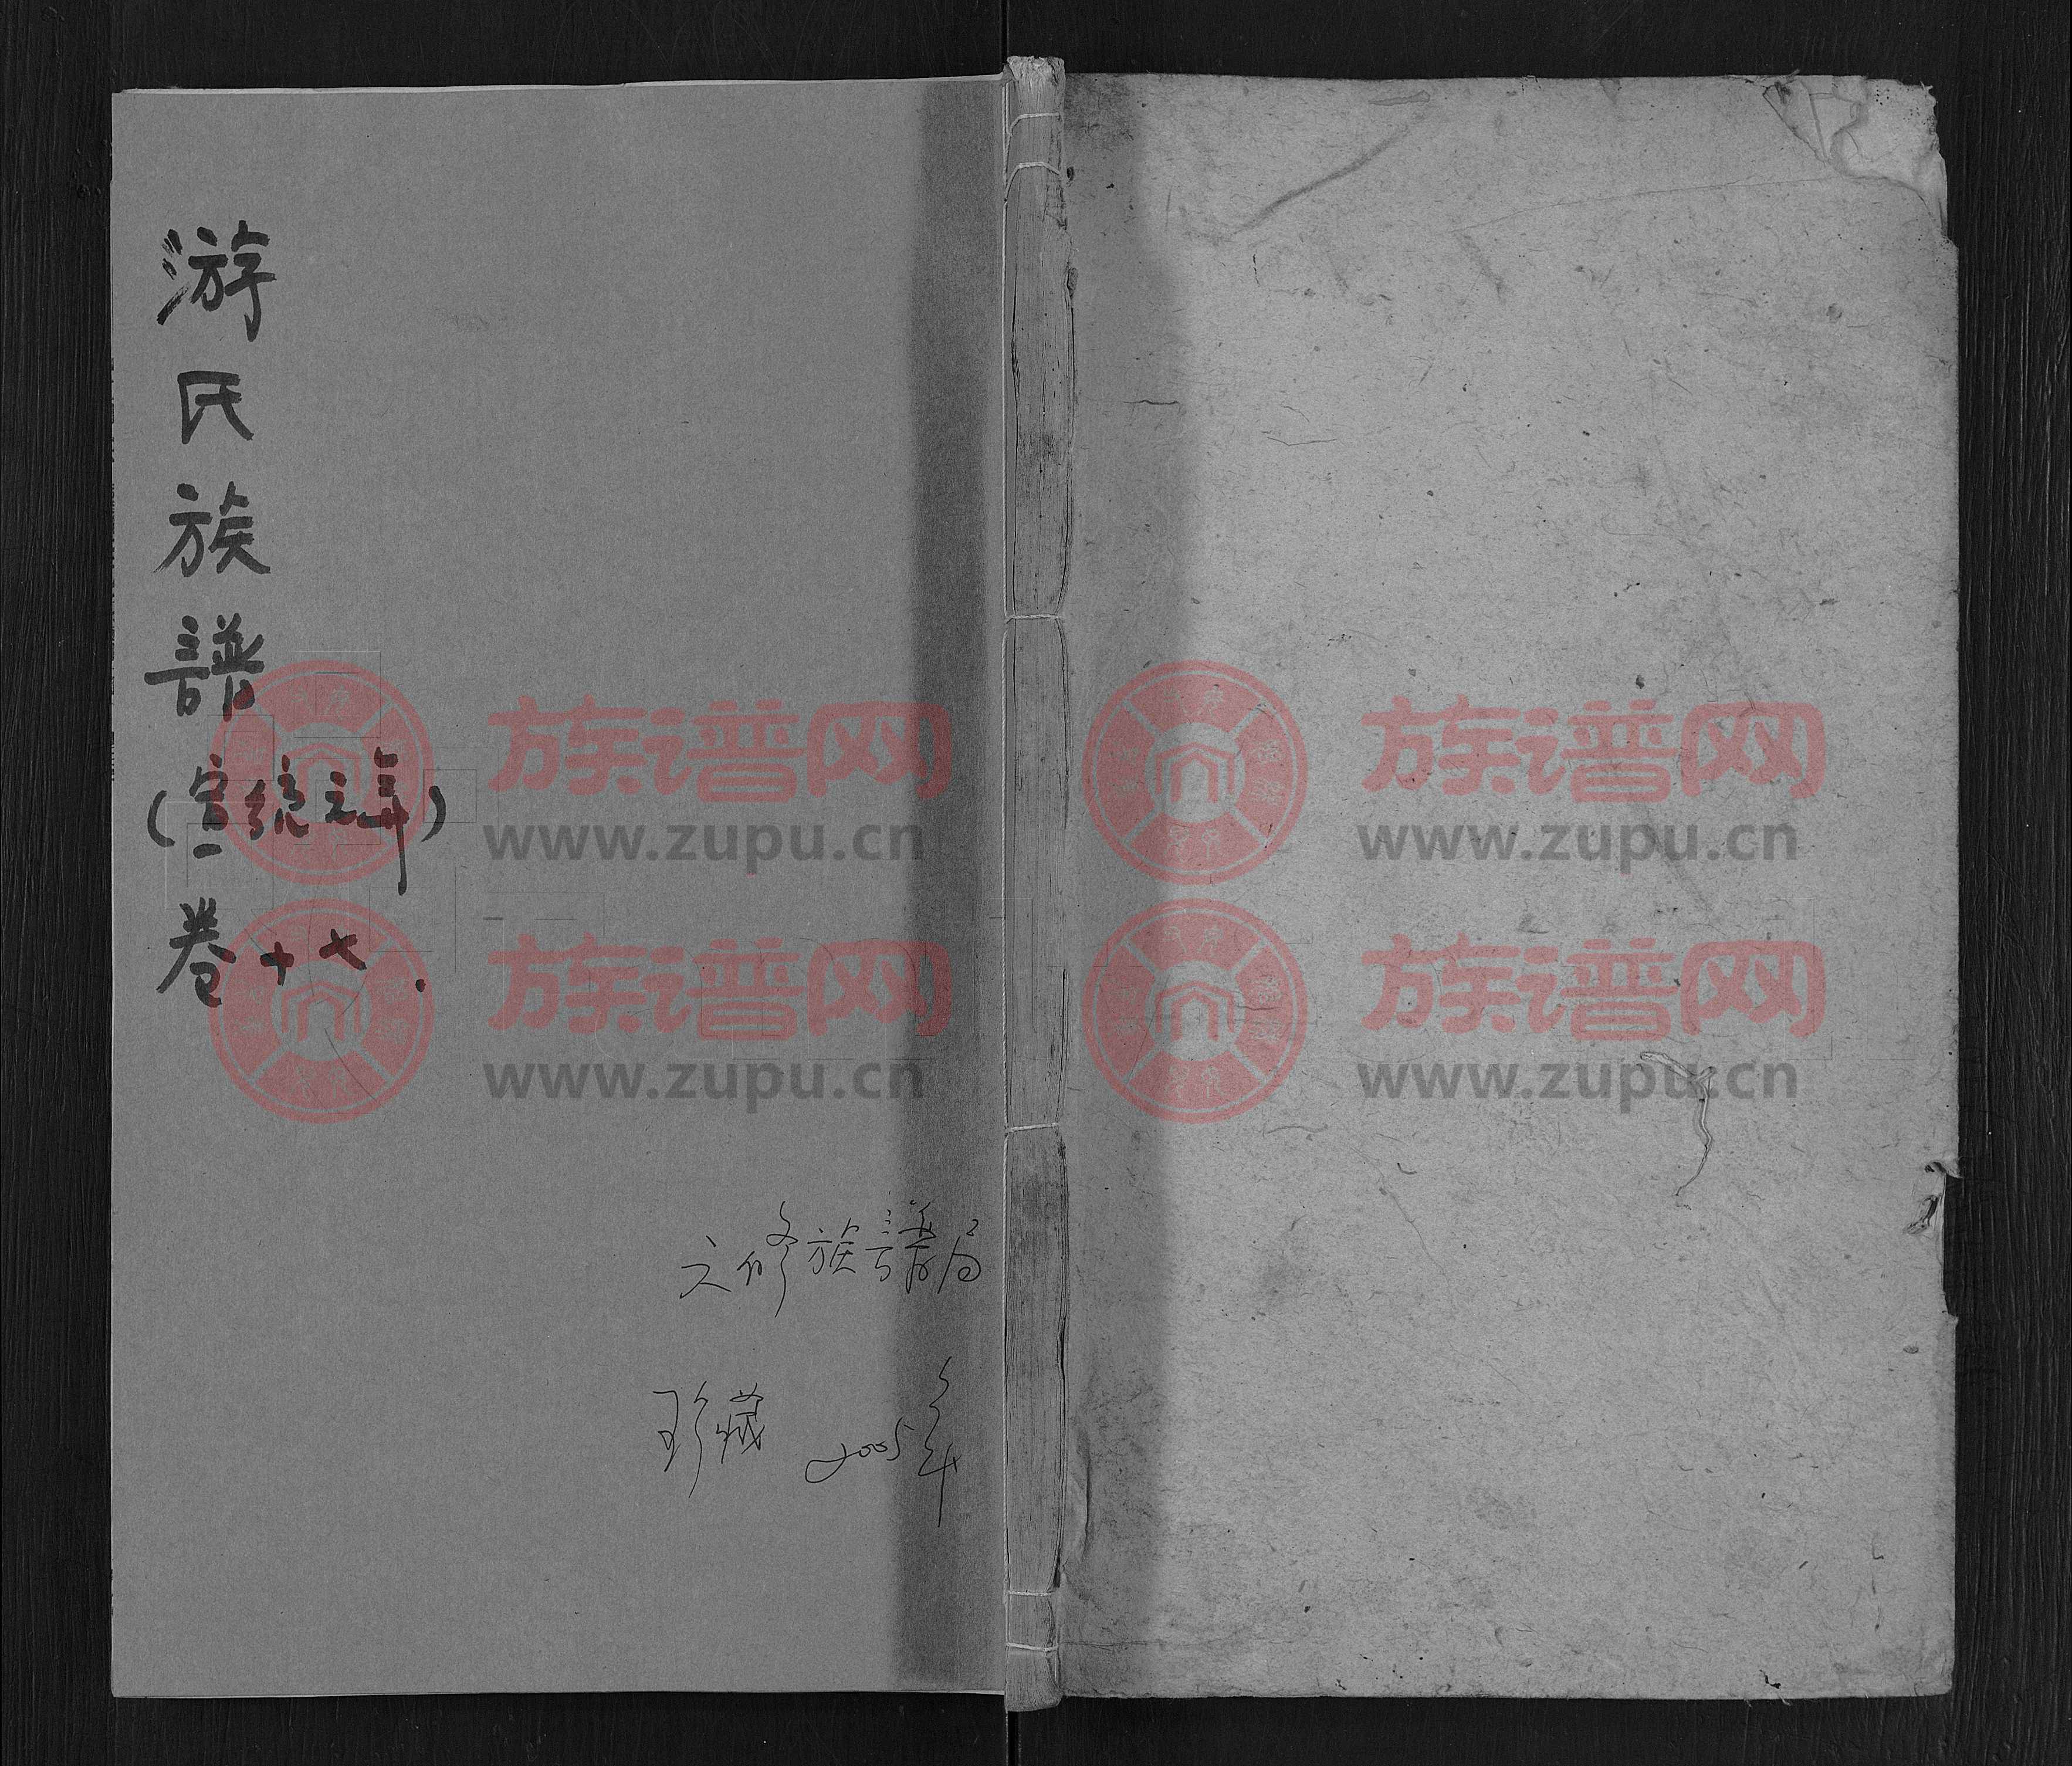 游
氏
族
譜
(宣統元年)
卷十七.
六修族譜局
珍藏 2005年
族谱网
www.zupu.cn
族谱网
www.zupu.cn
族谱网
www.zupu.cn
族谱网
www.zupu.cn